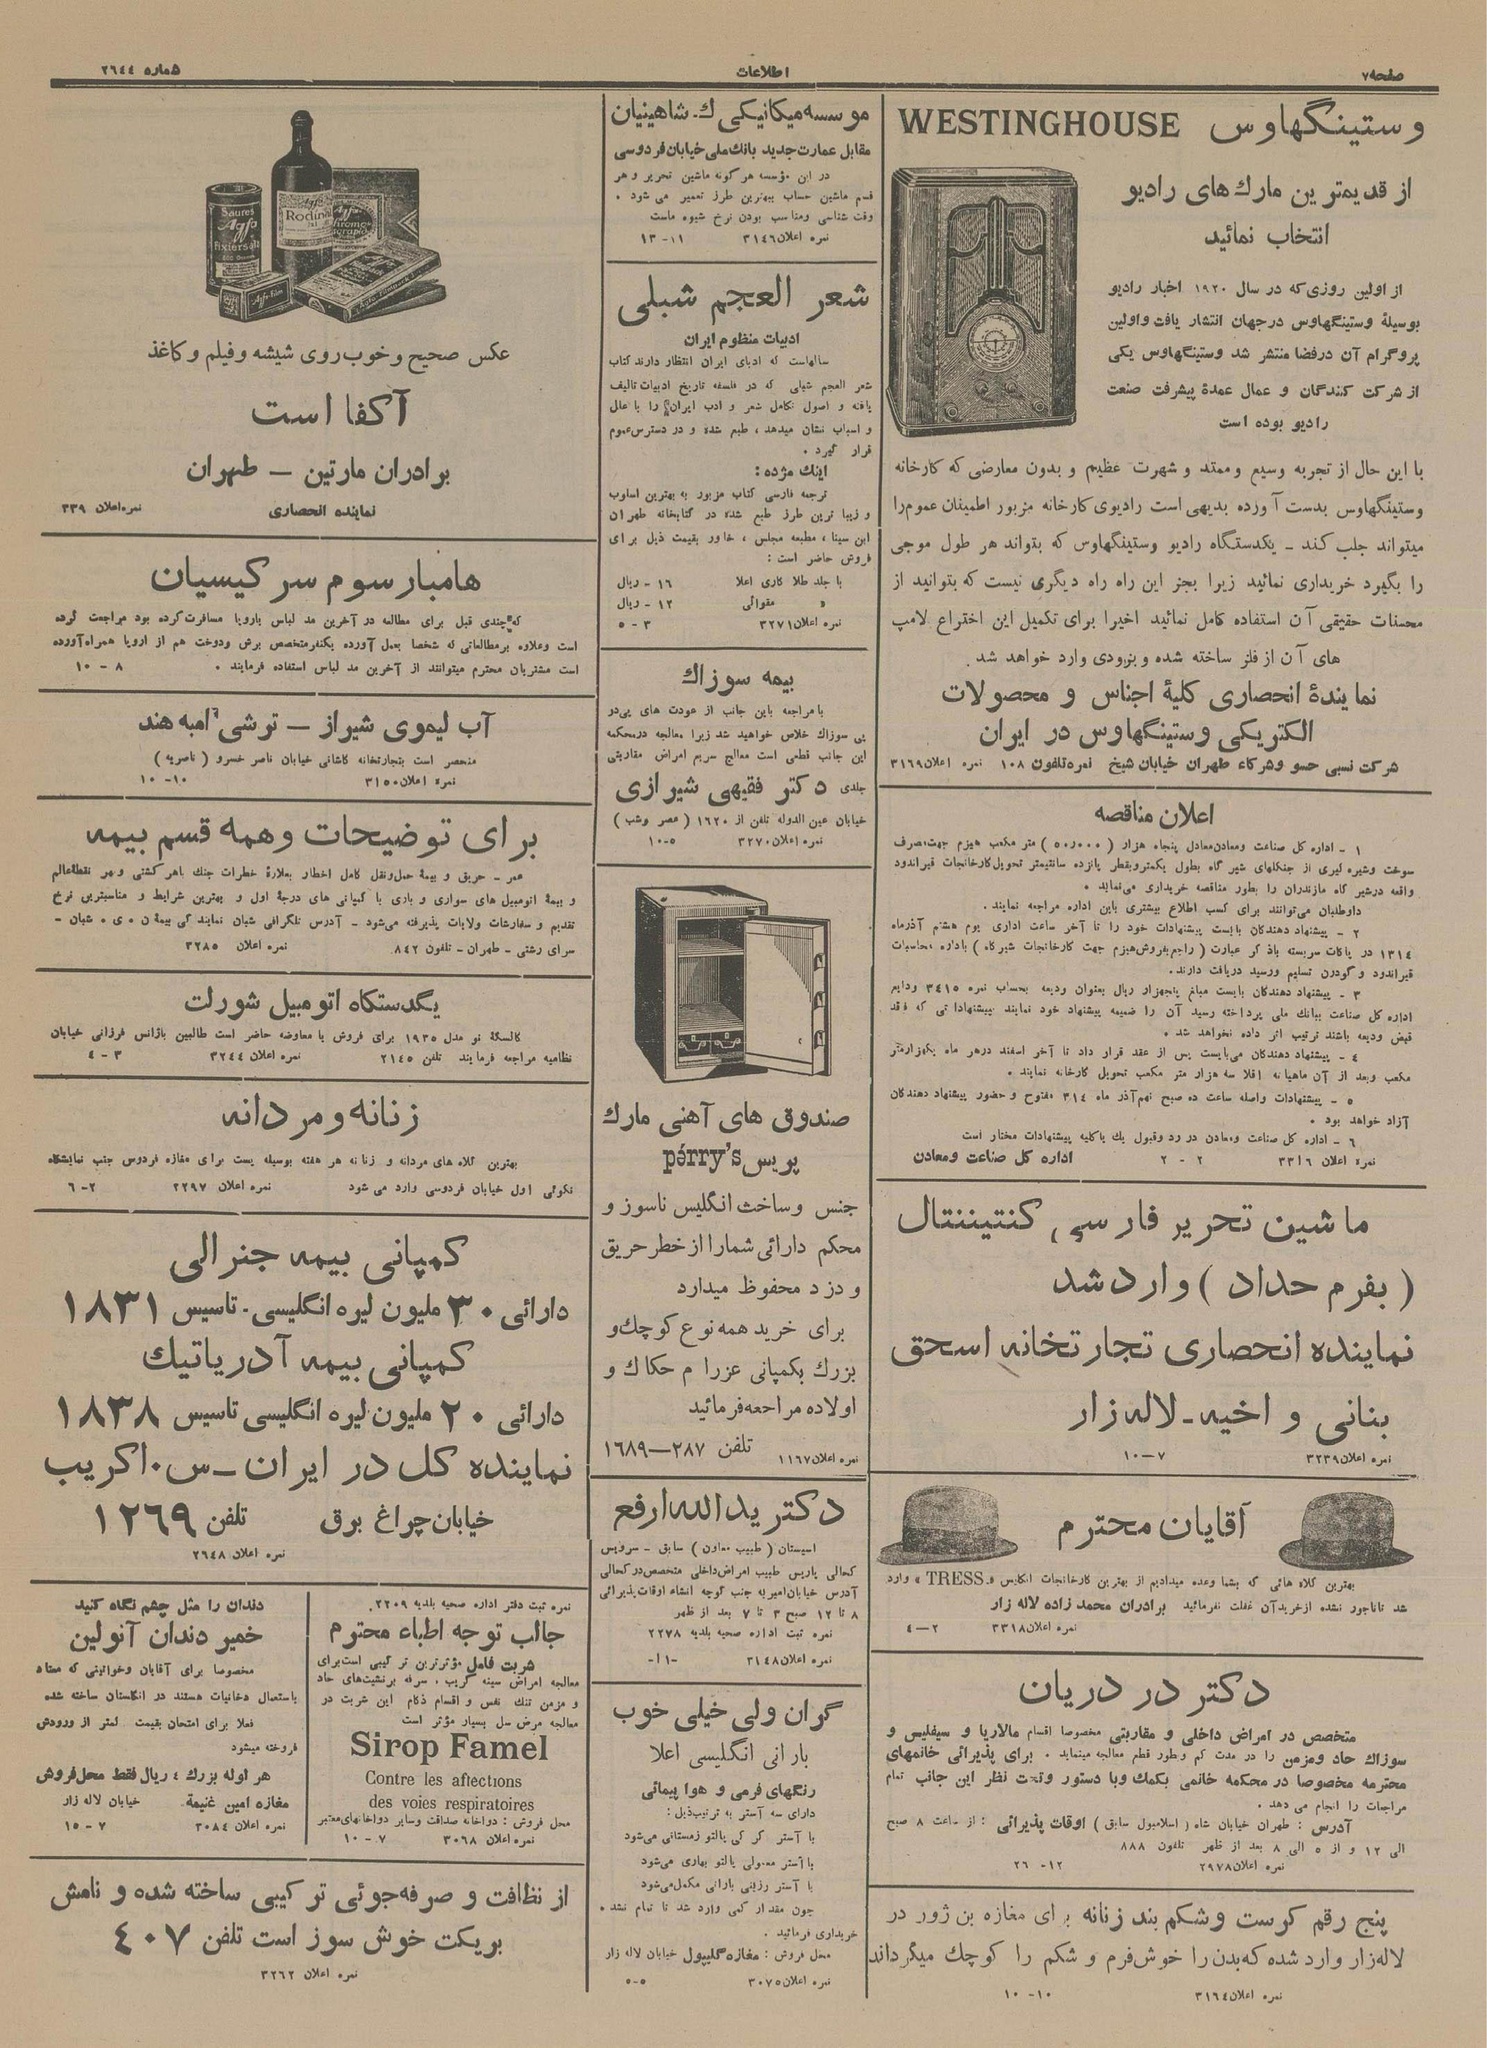 صفحه ۷
اطلاعات
شماره ۲٦٤٤
وستینگهاوس WESTINGHOUSE
از قدیمترین مارك های رادیو
انتخاب نمائید
از اولین روزی که در سال ۱۹۲۰ اخبار رادیو
بوسیلهٔ وستینگهاوس در جهان انتشار یافت و اولین
پروگرام آن در فضا منتشر شد وستینگهاوس یکی
از شرکت کنندگان و عمال عمدهٔ پیشرفت صنعت
رادیو بوده است
با این حال از تجربه وسیع و ممتد و شهرت عظیم و بدون معارضی که کارخانه
وستینگهاوس بدست آورده بدیهی است رادیوی کارخانه مزبور اطمینان عموم را
میتواند جلب کند ـ یکدستگاه رادیو وستینگهاوس که بتواند هر طول موجی
را بگیرد خریداری نمائید زیرا بجز این راه راه دیگری نیست که بتوانید از
محسنات حقیقی آن استفاده کامل نمائید اخیرا برای تکمیل این اختراع لامپ
های آن از فلز ساخته شده و بزودی وارد خواهد شد.
نمایندهٔ انحصاری کلیهٔ اجناس و محصولات
الکتریکی وستینگهاوس در ایران
شرکت نسبی حسو وشرکاء طهران خیابان شیخ نمره تلفون ۱۰۸ نمره اعلان ۳۱٦۹
اعلان مناقصه
۱ - اداره کل صناعت ومعادن معادل پنجاه هزار (۵۰٫۰۰۰) متر مکعب هیزم جهت مصرف
سوخت وشیره گیری از جنگلهای شیر گاه بطول یکمتر وبقطر پانزده سانتیمتر تحویل کارخانجات قیراندود
واقعه در شیر گاه مازندران را بطور مناقصه خریداری می‌نماید .
داوطلبان می‌توانند برای کسب اطلاع بیشتری باین اداره مراجعه نمایند.
۲ - پیشنهاد دهندگان بایست پیشنهادات خود را تا آخر ساعت اداری یوم هشتم آذر ماه
۱۳۱٤ در پاکات سربسته با ذکر عبارت ( راجع بفروش هیزم جهت کارخانجات شیرگاه ) باداره محاسبات
قیراندود و کودرن تسلیم ورسید دریافت دارند.
۳ - پیشنهاد دهندگان بایست مبلغ پنجهزار ریال بعنوان ودیعه بحساب نمره ۳٤۱۵ ودایع
اداره کل صناعت ببانك ملی پرداخته رسید آن را ضمیمه پیشنهاد خود نمایند بپیشنهاداتی که فاقد
قبض ودیعه باشند ترتیب اثر داده نخواهد شد .
٤ - پیشنهاد دهندگان می‌بایست پس از عقد قرار داد تا آخر اسفند در هر ماه یکهزار متر
مکعب وبعد از آن ماهیانه اقلا سه هزار متر مکعب تحویل کارخانه نمایند .
۵ - پیشنهادات واصله ساعت ده صبح نهم آذر ماه ۳۱٤ مفتوح و حضور پیشنهاد دهندگان
آزاد خواهد بود .
٦ - اداره کل صناعت ومعادن در رد وقبول یك یا کلیه پیشنهادات مختار است
نمره اعلان ۳۳۱٦ ۲ - ۲ اداره کل صناعت ومعادن
ماشین تحریر فارسی کنتیننتال
( بفرم حداد ) وارد شد
نماینده انحصاری تجارتخانه اسحق
بنانی و اخیه ـ لاله زار
نمره اعلان ۳۲۳۹ ۷ — ۱۰
آقایان محترم
بهترین کلاه هائی که بشما وعده میدادیم از بهترین کارخانجات انگلیس «TRESS» وارد
شد تاناجور نشده از خرید آن غفلت نفرمائید برادران محمد زاده لاله زار
نمره اعلان ۳۳۱۸ ۲ — ٤
دکتر در دریان
متخصص در امراض داخلی و مقاربتی مخصوصا اقسام مالاریا و سیفلیس و
سوزاك حاد ومزمن را در مدت کم وبطور قطع معالجه مینماید . برای پذیرائی خانمهای
محترمه مخصوصا در محکمه خانمی بکمك وبا دستور وتحت نظر این جانب تمام
مراجعات را انجام می دهد .
آدرس : طهران خیابان شاه (اسلامبول سابق) اوقات پذیرائی : از ساعت ۸ صبح
الی ۱۲ و از ۵ الی ۸ بعد از ظهر تلفون ۸۸۸
نمره اعلان ۲۹۷۸ ۱۲- ۲٦
پنج رقم کرست وشکم بند زنانه برای مغازه بن ژور در
لاله زار وارد شده که بدن را خوش فرم و شکم را کوچك میگرداند
نمره اعلان ۳۱٦٤ ۱۰- ۱۰
موسسه میکانیکی ك ـ شاهینیان
مقابل عمارت جدید بانك ملی خیابان فردوسی
در این مؤسسه هر گونه ماشین تحریر و هر
قسم ماشین حساب ببهترین طرز تعمیر می شود .
وقت شناسی ومناسب بودن نرخ شیوه ماست
نمره اعلان ۳۱٤٦ ۱۱- ۱۳
شعر العجم شبلی
ادبیات منظوم ایران
سالهاست که ادبای ایران انتظار دارند کتاب
شعر العجم شبلی که در فلسفه تاریخ ادبیات تالیف
یافته و اصول تکامل شعر و ادب ایران را با علل
و اسباب نشان میدهد ، طبع شده و در دسترس عموم
قرار گیرد .
اینك مژده :
ترجمه فارسی کتاب مزبور به بهترین اسلوب
و زیبا ترین طرز طبع شده در کتابخانه طهران
ابن سینا ، مطبعه مجلس ، خاور بقیمت ذیل برای
فروش حاضر است :
با جلد طلا کاری اعلا ۱٦ - ریال
» مقوائی ۱۲ - ریال
نمره اعلان ۳۲۷۱ ۳ - ۵
بیمه سوزاك
با مراجعه باین جانب از عودت های پی در
پی سوزاك خلاص خواهید شد زیرا معالجه در محکمه
این جانب قطعی است معالج سریع امراض مقاربتی
جلدی دکتر فقیهی شیرازی
خیابان عین الدوله تلفن از ۱٦۲۰ ( عصر وشب )
نمره اعلان ۳۲۷۰ ۵-۱۰
صندوق های آهنی مارك
پریس pérry's
جنس وساخت انگلیس ناسوز و
محکم دارائی شما را از خطر حریق
و دزد محفوظ میدارد
برای خرید همه نوع کوچك و
بزرك بکمپانی عزرا م حکاك و
اولاده مراجعه فرمائید
نمره اعلان ۱۱٦۷ تلفن ۲۸۷—۱٦۸۹
دکتر یدالله ارفع
اسیستان ( طبیب معاون ) سابق - سرویس
کحالی پاریس طبیب امراض داخلی متخصص در کحالی
آدرس خیابان امیریه جنب کوچه انشاء اوقات پذیرائی
۸ تا ۱۲ صبح ۳ تا ۷ بعد از ظهر
نمره ثبت اداره صحیه بلدیه ۲۲۷۸
نمره اعلان ۳۱٤۸ -۱۱-
گران ولی خیلی خوب
بارانی انگلیسی اعلا
رنگهای فرمی و هوا پیمائی
دارای سه آستر به ترتیب ذیل :
با آستر کرکی پالتو زمستانی می‌شود
با آستر معمولی پالتو بهاری می‌شود
با آستر رزینی بارانی مکمل می‌شود
چون مقدار کمی وارد شد تا تمام نشده
خریداری فرمائید .
محل فروش : مغازه گلیپول خیابان لاله زار
نمره اعلان ۳۰۷۵ ۵-۵
Saures
Agfa
Fixiersalz
Agfa
Rodinal
Agfa-Film
عکس صحیح وخوب روی شیشه وفیلم وکاغذ
آکفا است
برادران مارتین — طهران
نماینده انحصاری نمره اعلان ۳۳۹
هامبارسوم سرکیسیان
که چندی قبل برای مطالعه در آخرین مد لباس باروپا مسافرت کرده بود مراجعت کرده
است وعلاوه بر مطالعاتی که شخصا بعمل آورده یکنفر متخصص برش ودوخت هم از اروپا همراه آورده
است مشتریان محترم میتوانند از آخرین مد لباس استفاده فرمایند . ۸ - ۱۰
آب لیموی شیراز — ترشی امبه هند
منحصر است بتجارتخانه کاشانی خیابان ناصر خسرو ( ناصریه )
نمره اعلان ۳۱۵۰ ۱۰- ۱۰
برای توضیحات وهمه قسم بیمه
عمر - حریق و بیمهٔ حمل ونقل کامل اخطار بعلاوهٔ خطرات جنك باهر کشتی و بهر نقطه عالم
و بیمهٔ اتومبیل های سواری و باری با کمپانی های درجهٔ اول و بهترین شرایط و مناسبترین نرخ
تقدیم و سفارشات ولایات پذیرفته می‌شود - آدرس تلگرافی شبان نمایندگی بیمهٔ ن . ی . شبان -
سرای رشتی - طهران - تلفون ۸٤۲ نمره اعلان ۳۲۸۵
یکدستگاه اتومبیل شورلت
کالسکهٔ نو مدل ۱۹۳۵ برای فروش یا معاوضه حاضر است طالبین باژانس فرزانی خیابان
نظامیه مراجعه فرمایند تلفن ۲۱٤۵ نمره اعلان ۳۲٤٤ ۳ - ٤
زنانه ومردانه
بهترین کلاه های مردانه و زنانه هر هفته بوسیله پست برای مغازه فردوس جنب نمایشگاه
نکوئی اول خیابان فردوسی وارد می شود نمره اعلان ۲۲۹۷ ۲- ٦
کمپانی بیمه جنرالی
دارائی ۳۰ ملیون لیره انگلیسی - تاسیس ۱۸۳۱
کمپانی بیمه آدریاتیك
دارائی ۲۰ ملیون لیره انگلیسی تاسیس ۱۸۳۸
نماینده کل در ایران ـ س. اکریب
خیابان چراغ برق تلفن ۱۲٦۹
نمره اعلان ۲٦٤۸
نمره ثبت دفتر اداره صحیه بلدیه ۲۲۰۹
جالب توجه اطباء محترم
شربت فامل مؤثرترین ترکیبی است برای
معالجه امراض سینه گریپ . سرفه برنشیت‌های حاد
و مزمن تنك نفس و اقسام ذکام این شربت در
معالجه مرض سل بسیار مؤثر است
Sirop Famel
Contre les affections
des voies respiratoires
محل فروش : دواخانه صداقت وسایر دواخانهای معتبر
نمره اعلان ۳۰٦۸ ۷ - ۱۰
دندان را مثل چشم نگاه کنید
خمیر دندان آنولین
مخصوصا برای آقایان وخوانینی که معتاد
باستعمال دخانیات هستند در انگلستان ساخته شده
فعلا برای امتحان بقیمت کمتر از ورودش
فروخته میشود
هر لوله بزرك ٤ ریال فقط محل فروش
مغازه امین غنیمة. خیابان لاله زار
نمره اعلان ۳۰۸٤ ۷ - ۱۵
از نظافت و صرفه جوئی ترکیبی ساخته شده و نامش
بریکت خوش سوز است تلفن ٤۰۷
نمره اعلان ۳۲٦۲